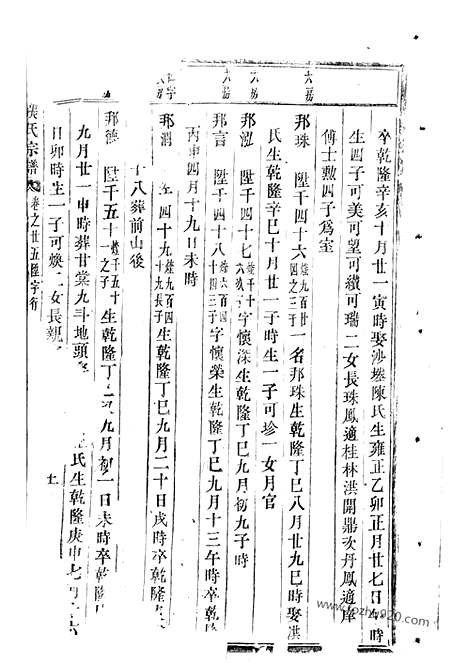 卒乾隆辛亥十月廿一寅時娶沙塍陳氏生雍正乙卯正月廿七日時
生四子可美可望可纘可瑞二女長珠鳳適桂林洪開鼎次丹鳳適岸
傅士勲四子爲室
六房
邦珠 陞千四十六燧九百廿四之三子一名邦珠生乾隆丁巳八月廿九巳時娶洪
氏生乾隆辛巳十月廿一子時生一子可珍一女月官
六房
邦泓 陞千四十七燧千十六次子字懷深生乾隆丁巳九月初九子時
六房
邦言 陞千四十八燧六百四十四三子字懷榮生乾隆丁巳九月十三午時卒乾隆
丙申四月十九日未時
邦渭 四十九燧九百四十九長子生乾隆丁巳九月二十日戌時卒乾隆
十八葬前山後
邦德 陞千五十燧千五十一之子生乾隆丁巳九月初一日未時卒乾隆
九月廿一申時葬甘棠九斗地頭 氏生乾隆庚申七月
日卯時生一子可煥二女長親
氏宗譜 卷之廿五陞字行